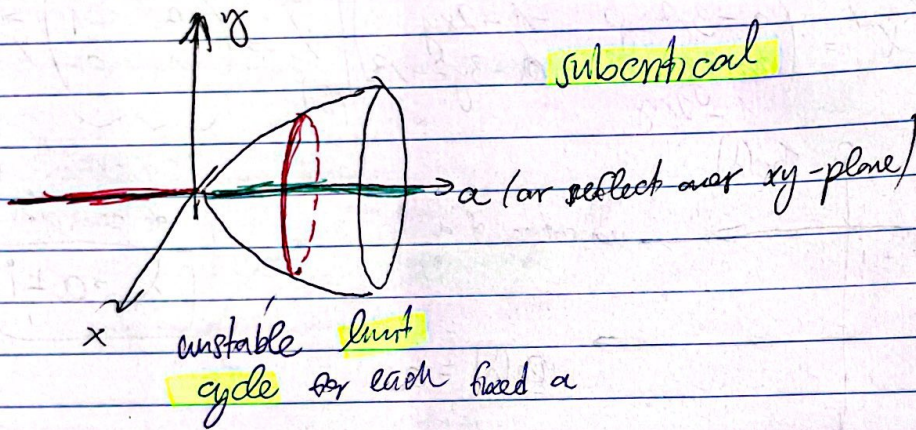 y
subcritical
a (or reflect over xy-plane)
x
unstable limit
cycle for each fixed a